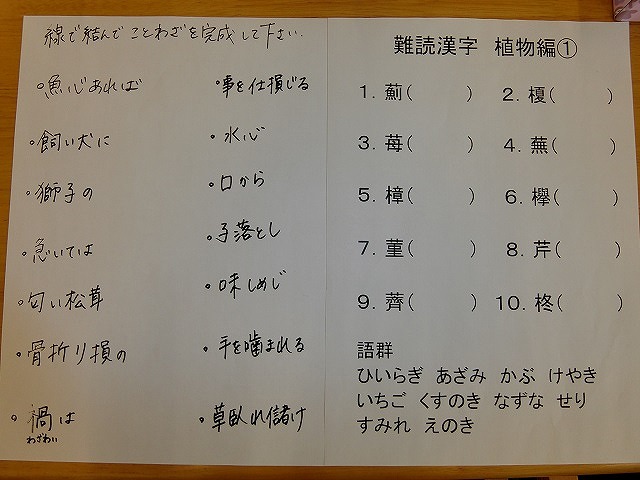 線で結んでことわざを完成して下さい.
・魚心あれば
・飼い犬に
・獅子の
・急いては
・匂い松茸
・骨折り損の
・禍は
わざわい
・事を仕損じる
・水心
・口から
・子落とし
・味しめじ
・手を噛まれる
・草臥れ儲け
難読漢字 植物編①
1. 薊( ) 2. 榎( )
3. 苺( ) 4. 蕪( )
5. 樟( ) 6. 欅( )
7. 菫( ) 8. 芹( )
9. 薺( ) 10. 柊( )
語群
ひいらぎ あざみ かぶ けやき
いちご くすのき なずな せり
すみれ えのき